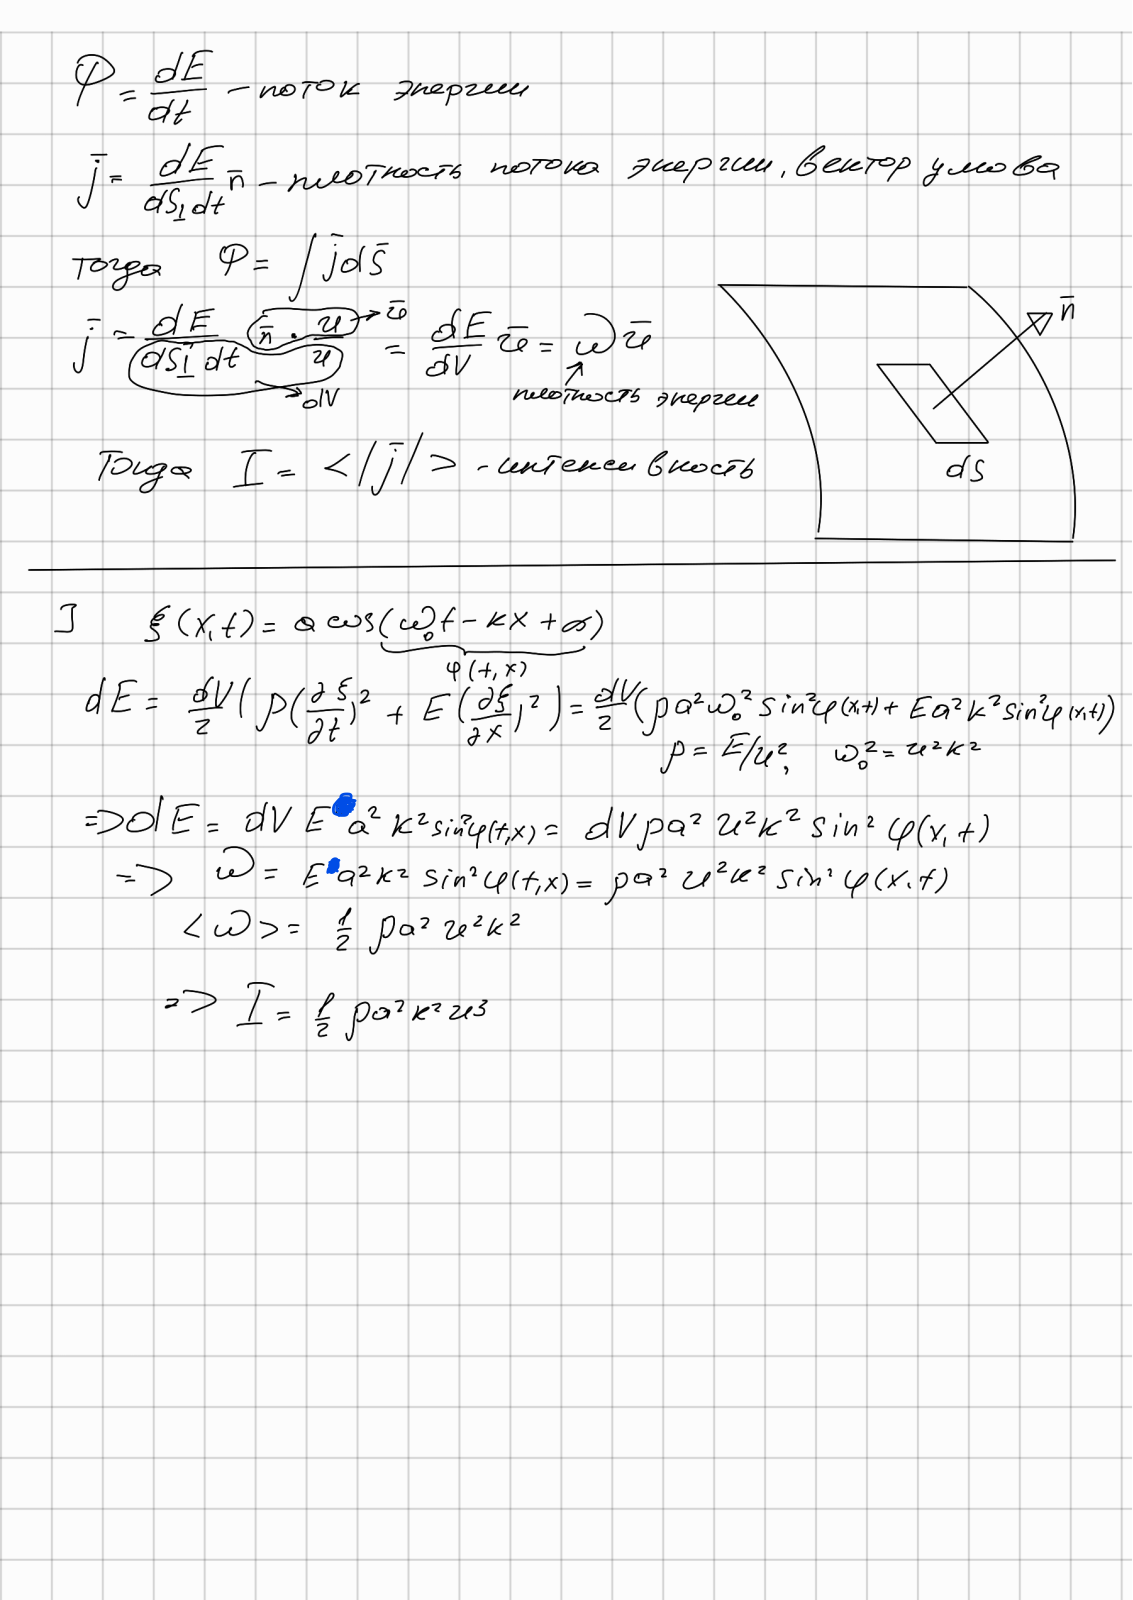 Φ = dE/dt - поток энергии
j̄ = dE/(dS⊥dt) n̄ - плотность потока энергии, вектор умова
тогда Φ = ∫ j̄dS̄
j̄ = dE/(dS⊥ dt) n̄ · u/u = dE/dV ū = ωū
→ ū
→ dV
плотность энергии
Тогда I = <|j̄|> - интенсивность
n̄
dS
] ξ(x,t) = a cos(ω₀t - kx + α)
φ(t,x)
dE = dV/2 (ρ(∂ξ/∂t)² + E(∂ξ/∂x)²) = dV/2 (ρa²ω₀² sin²φ(x,t) + Ea²k² sin²φ(x,t))
ρ = E/u², ω₀² = u²k²
=> dE = dV E a² k² sin²φ(t,x) = dV ρa² u²k² sin² φ(x,t)
=> ω = E a²k² sin²φ(t,x) = ρa² u²k² sin² φ(x,t)
<ω> = 1/2 ρa² u²k²
=> I = 1/2 ρa²k²u³